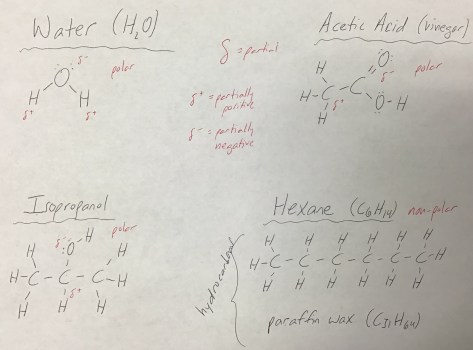 Water (H₂O)
δ⁻
polar
:O:
H H
δ⁺ δ⁺
δ = partial
δ⁺ = partially
positive
δ⁻ = partially
negative
Acetic Acid (vinegar)
:O:
H δ⁻ polar
H-C-C
δ⁺ O-H
H
Isopropanol
H polar
H δ⁻ :O H
H-C-C-C-H
H H δ⁺ H
Hexane (C₆H₁₄) non-polar
H H H H H H
H-C-C-C-C-C-C-H
H H H H H H
hydrocarbons
paraffin wax (C₃₁H₆₄)